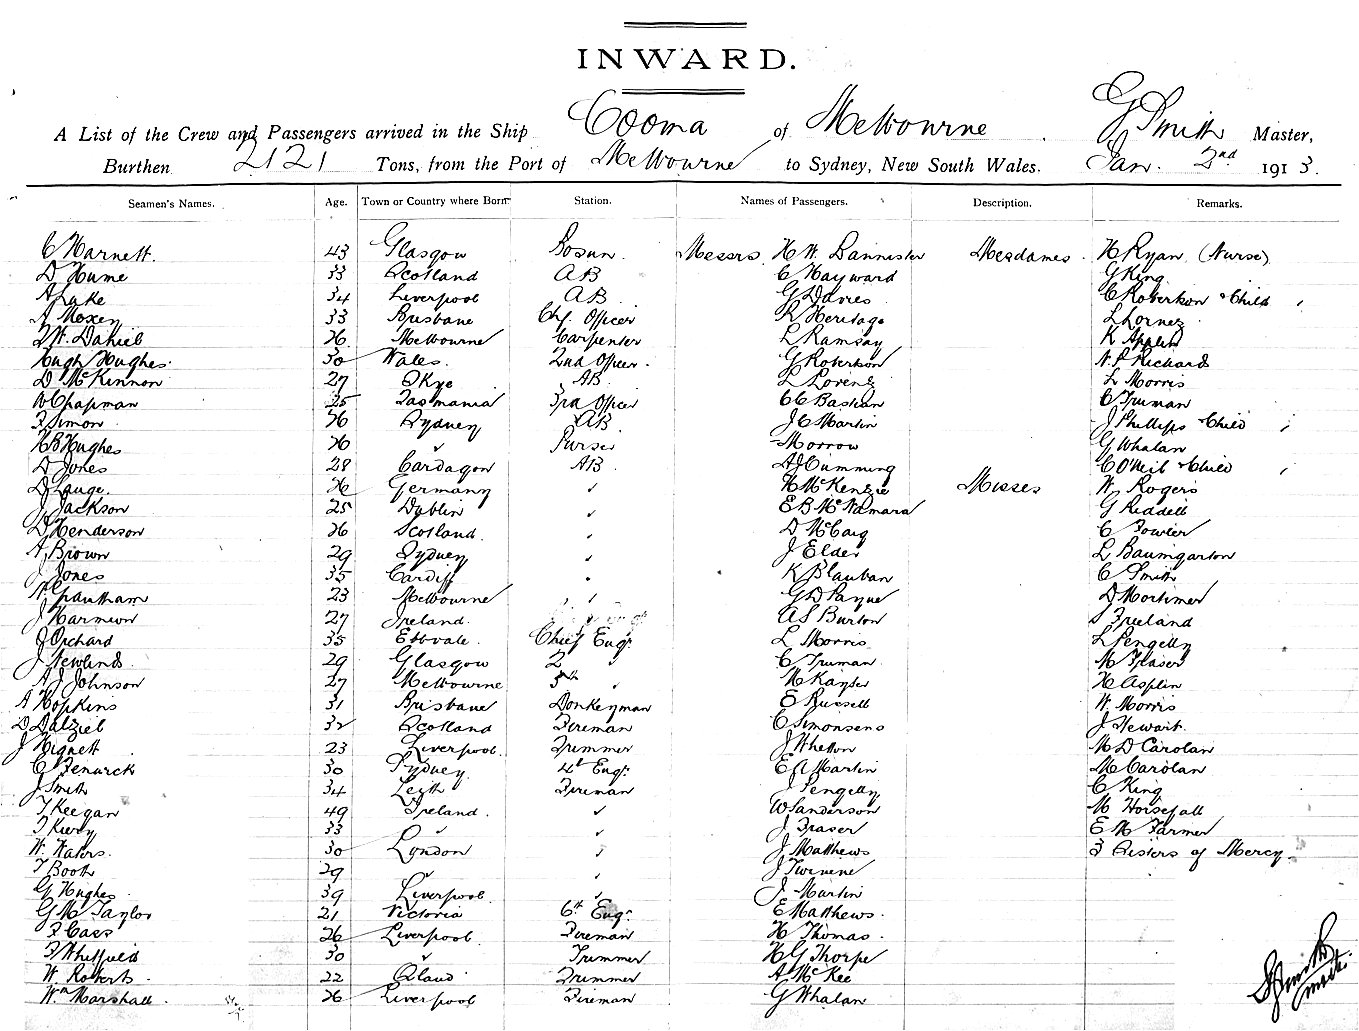 INWARD.
A List of the Crew and Passengers arrived in the Ship Cooma of Melbourne G Smith Master,
Burthen 2121 Tons, from the Port of Melbourne to Sydney, New South Wales. Jan. 2nd 1913.
Seamen's Names. Age. Town or Country where Born Station. Names of Passengers. Description. Remarks.
C Harnett. 43 Glasgow Bosun. Messrs. H. W. Bannister Mesdames. H Ryan (Nurse)
D Hume 33 Scotland AB C Hayward G King
A Lake 34 Liverpool AB G Davies C Robertson & Child
A Moxey 33 Brisbane Chf. Officer R Heritage L Lornez
W. Daniel 26 Melbourne Carpenter L Ramsay K
Hugh Hughes. 30 Wales. 2nd Officer. G Robertson N. P. Richards
D McKinnon 27 Skye AB L Lorenz L Morris
W Chapman 25 Tasmania 3rd Officer CC Bastian C Truman
F Simon 26 Sydney AB J C Martin J Phillips & Child
H B Hughes 26 " Purser Morrow G Whalan
D Jones 28 Cardagon AB A J Cumming C O'Neil & Child
D Lauge. 26 Germany " H McKenzie Misses W Rogers
J Jackson 25 Dublin " E B McNamara G Riddell
D Henderson 26 Scotland. " D McCaig C Fowler
A Brown 29 Sydney " J Elder L Baumgarton
J Jones 35 Cardiff " K Blauban C Smith
W Grantham 23 Melbourne " G D Payne D Mortimer
J Harmion 27 Ireland. A S Burton Freeland
J Orchard 35 Ebbvale. Chief Engr. L Morris L Pengelly
J Newlands. 29 Glasgow 2 " C Truman M Fraser
A J Johnson 27 Melbourne 5th " M Kayser H Asplin
A Hopkins 31 Brisbane Donkeyman E Russell W. Morris
D Dalziel 32 Scotland Fireman C Simonsens J Stewart.
J Hignett 23 Liverpool. Trimmer J Whetton M D Carolan
C Fenwick 30 Sydney. 4th Engr. E A Martin M Carolan
J Smith 34 Leith Fireman J Pengelly C King
T Keegan 49 Ireland. " W Sanderson M Horsefall
T Kiery 33 " " J Fraser E M Farmer
W. Waters. 30 London " J Matthews 3 Sisters of Mercy.
T Booth 29 " " J Twivene
G Hughes 39 Liverpool. " J Martin
G M Taylor 21 Victoria 6th Engr. E Matthews.
F Cass 26 Liverpool. Fireman H Thomas.
F Whitfield 30 " Trimmer H G Thorpe
W. Roberts. 22 Qland Trimmer A McKee
Wm Marshall. 26 Liverpool Fireman G Whalan
G Smith